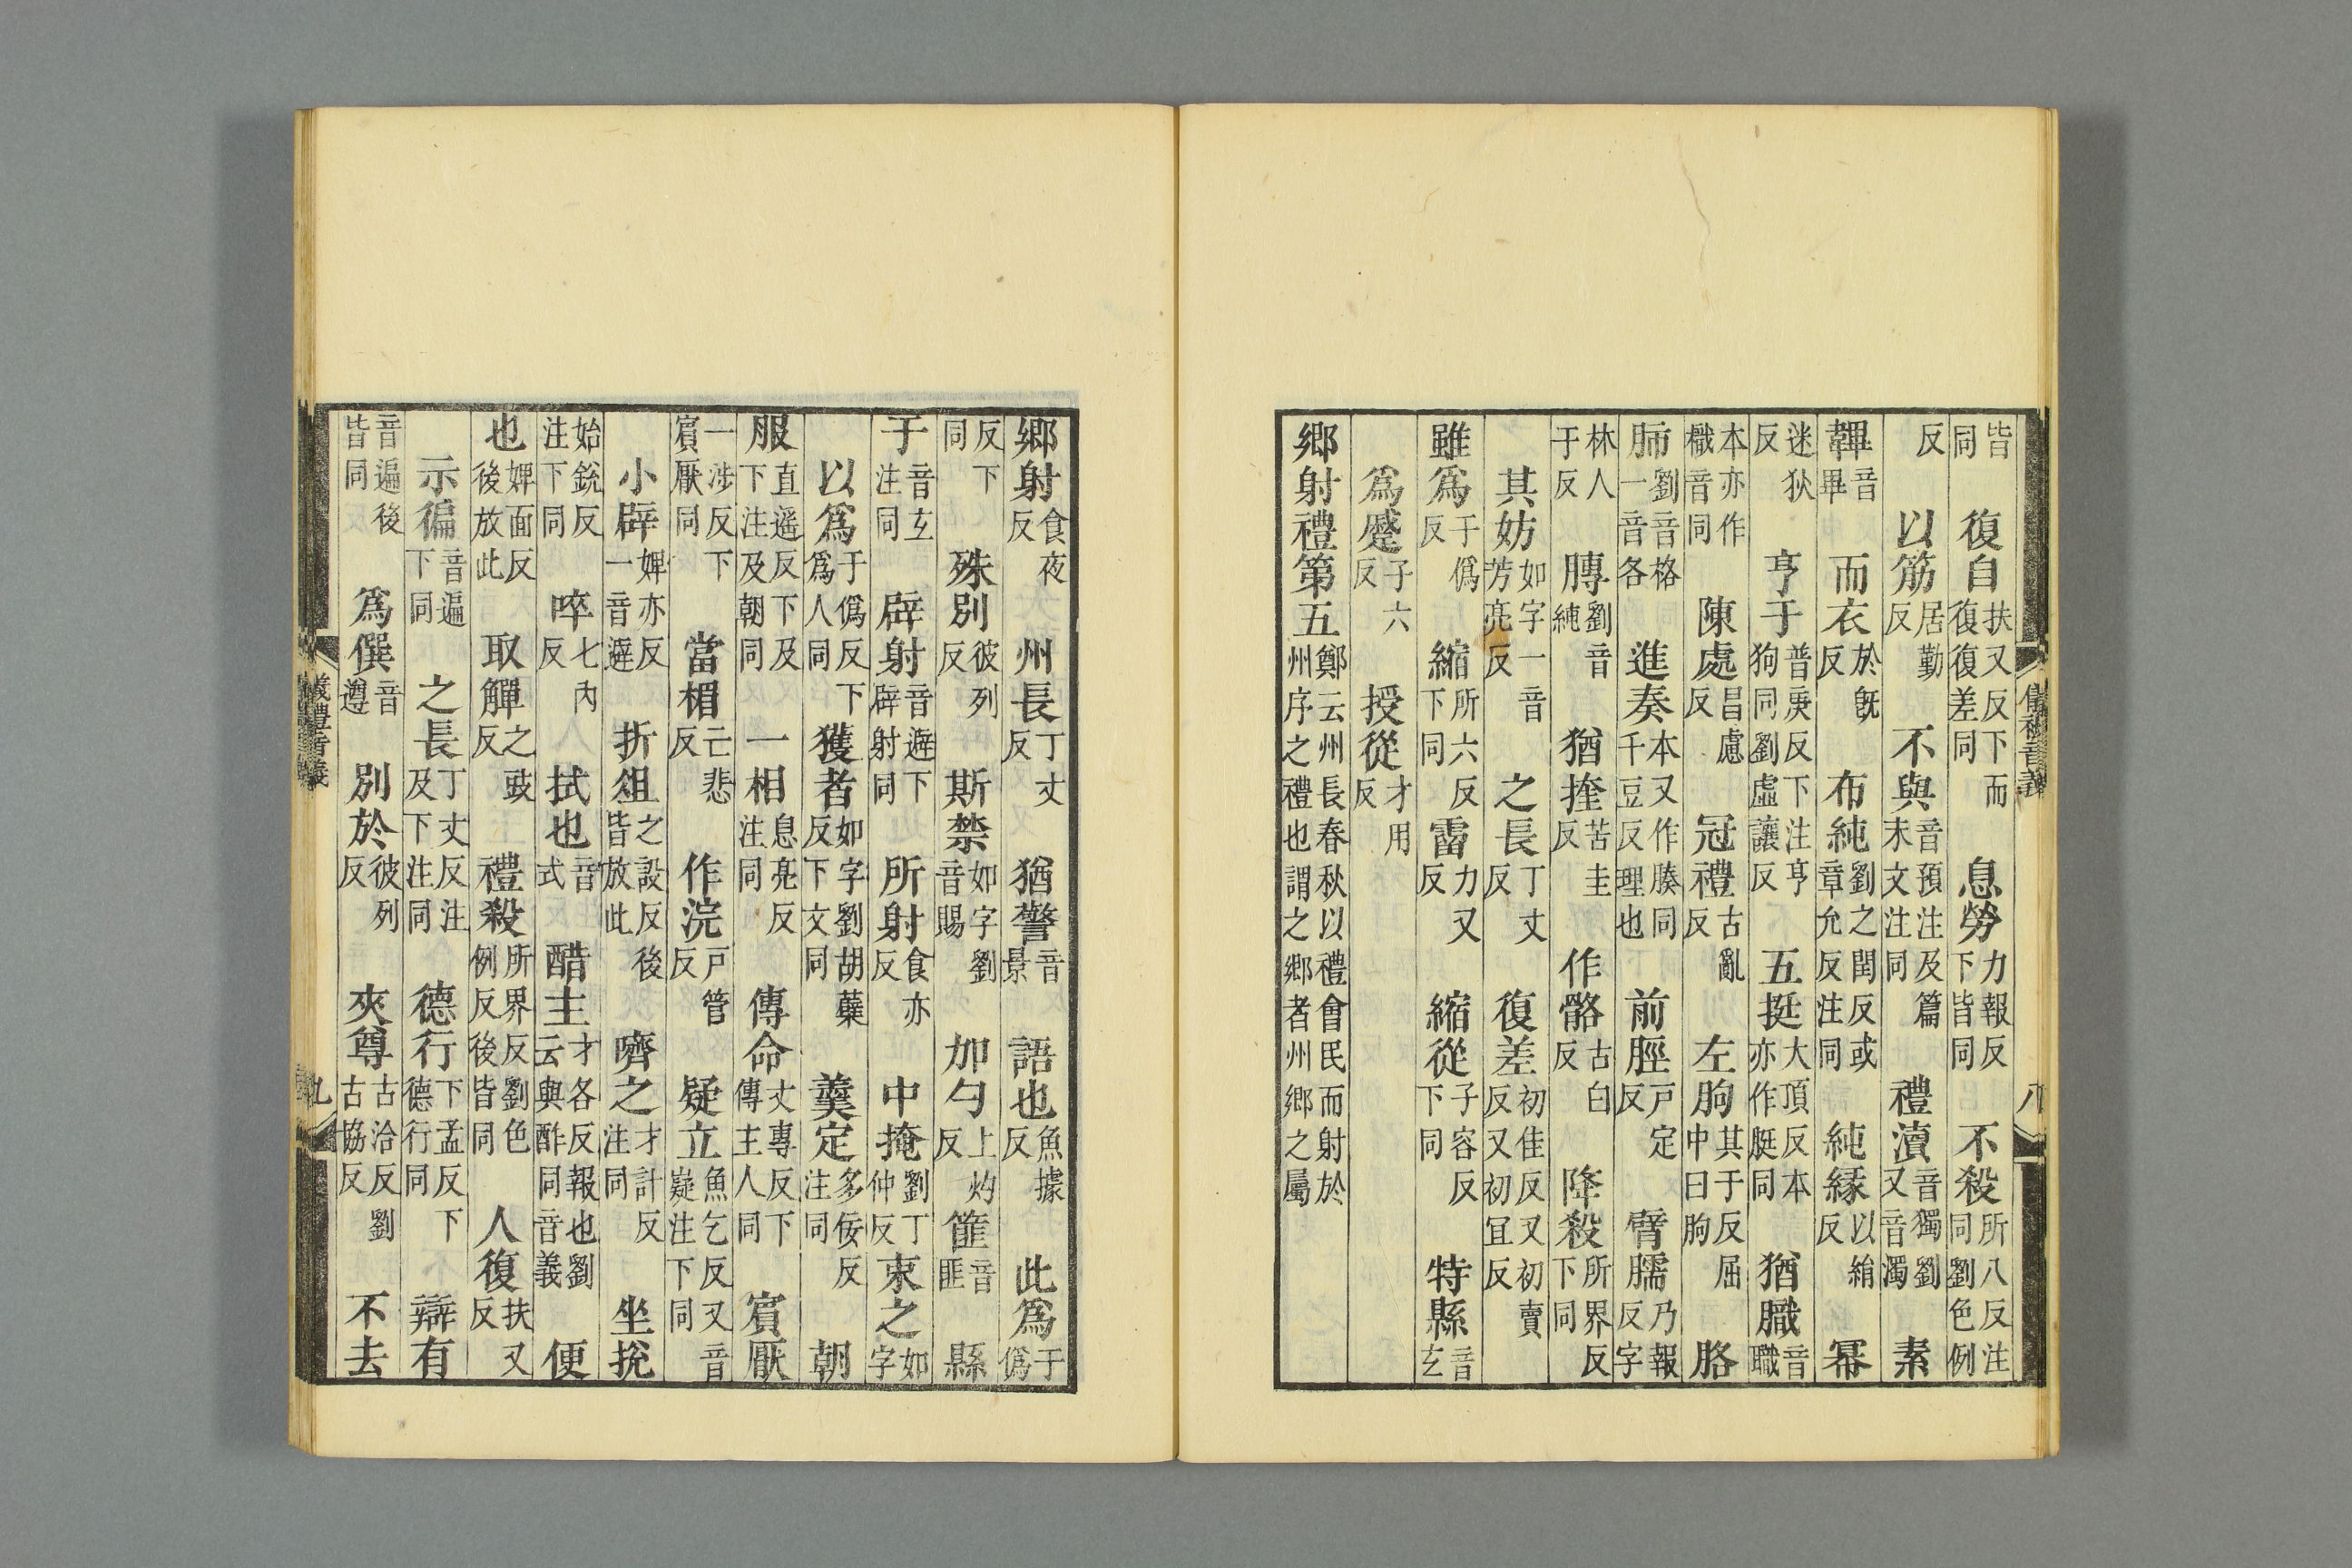 皆同 復自扶又反下而復復差同 息勞力報反下皆同 不殺所八反注同劉色例
反 以筋居勤反 不與音預注及篇末文注同 禮瀆音獨劉又音濁 素
韠音畢 而衣於旣反 布純劉之閏反或章允反注同 純緣以絹反 冪
迷狄反 亨于普庚反下注亨狗同劉虛讓反 五挺大頂反本亦作脡同 猶膱音職
本亦作樴音同 陳處昌慮反 冠禮古亂反 左朐其于反屈中曰朐 胳
胏劉音格一音各 進奏本又作腠同千豆反理也 前脛戶定反 臂臑乃報反字
林人于反 膞劉音純 猶挳苦圭反 作骼古白反 降殺所界反下同
其妨如字一音芳亮反 之長丁丈反 復差初佳反又初賣反又初宜反
雖爲于僞反 縮所六反下同 霤力又反 縮從子容反下同 特縣音玄
爲蹙子六反 授從才用反
鄉射禮第五鄭云州長春秋以禮會民而射於州序之禮也謂之鄉者州鄉之屬
儀禮音義 八
鄉射食夜反 州長丁丈反 猶警音景 語也魚據反 此爲于僞
反下同 殊別彼列反 斯禁如字劉音賜 加勺上灼反 篚音匪 縣
于音玄注同 辟射音避下辟射同 所射食亦反 中掩劉丁仲反 束之如字
以爲于僞反下爲人同 獲者如字劉胡蘗反下文同 羹定多佞反注同 朝
服直遥反下及下注及朝同 一相息亮反注同 傳命丈專反下傳主人同 賓厭
一涉反下賓厭同 當楣亡悲反 作浣戶管反 疑立魚乞反又音嶷注下同
小辟婢亦反一音避 折俎之設反後皆放此 嚌之才計反注同 坐挩
始銳反注下同 啐七內反 拭也音式 酷主才各反報也劉云與酢同音義 便
也婢面反後放此 取觶之豉反 禮殺所界反劉色例反後皆同 人復扶又反
示徧音遍下同 之長丁丈反注及下注同 德行下孟反下德行同 辯有
音遍後皆同 爲僎音遵 別於彼列反 夾尊古洽反劉古協反 不去
儀禮音義 九